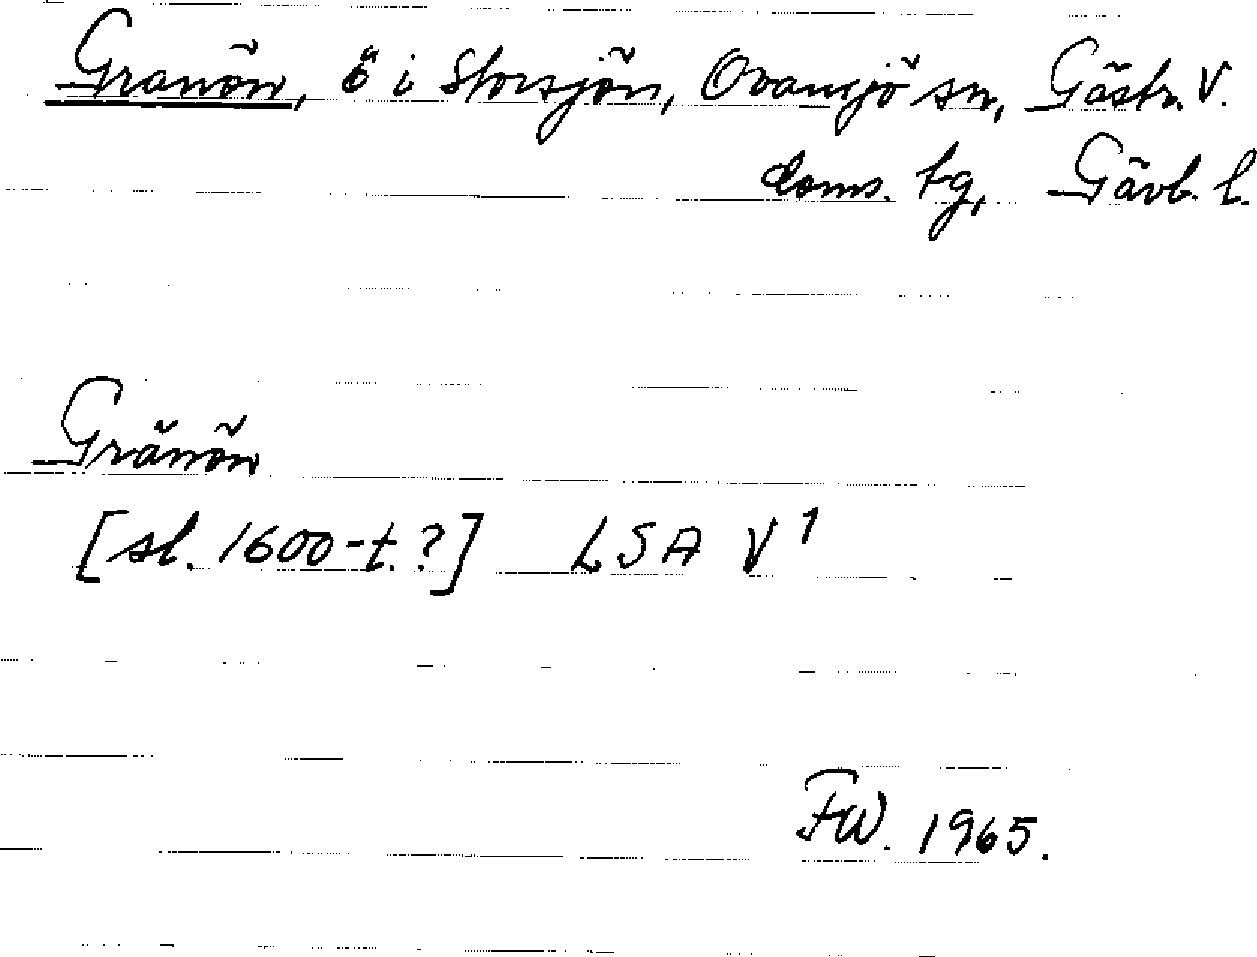 Granön, ö i Storsjön, Ovansjö sn, Gästr. V.
doms. tg, Gävb. l.
Gränön
[sl. 1600-t.?] LSA V 1
FW. 1965.